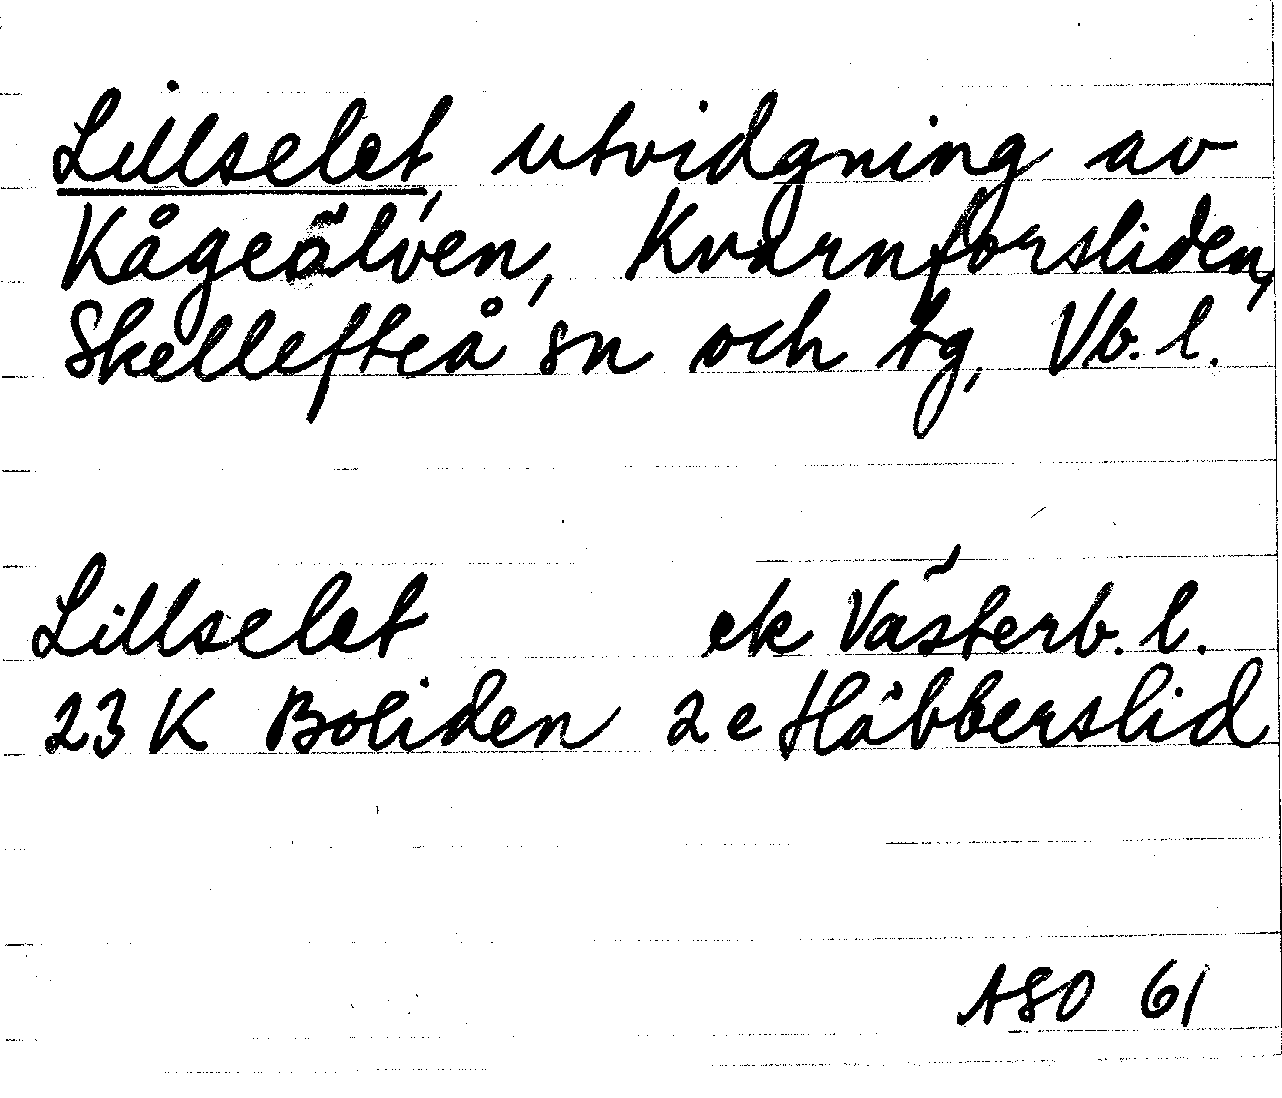 Lillselet, utvidgning av
Kågeälven, Kvarnforsliden,
Skellefteå sn och tg, Vb. l.
Lillselet ek Västerb. l.
23 K Boliden 2e Håbberslid
ASO 61